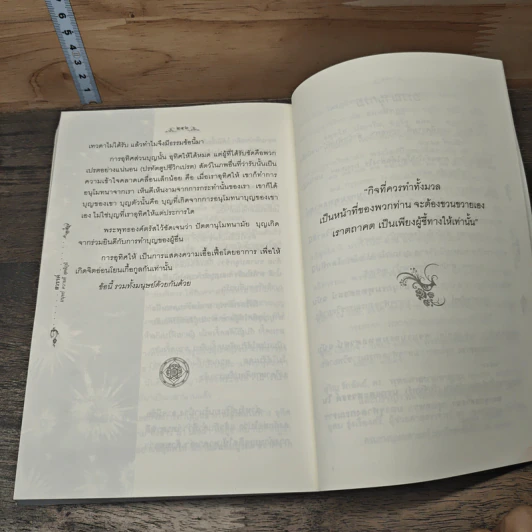 ๒๕๖
เทวดาไม่ได้รับ แล้วทำไมจึงมีธรรมข้อนี้มา
การอุทิศส่วนบุญนั้น อุทิศให้ได้หมด แต่ผู้ที่ได้รับชัดคือพวก
เปรตอย่างแน่นอน (ปรทัตตูปชีวิกเปรต) สัตว์ในภพอื่นที่ว่ารับนั้นเป็น
ความเข้าใจคลาดเคลื่อนเล็กน้อย คือ เมื่อเราอุทิศให้ เขาก็ทำการ
อนุโมทนาจากเรา เห็นดีเห็นงามจากการกระทำนั้นของเรา เขาก็ได้
บุญของเขา บุญตัวนั้นคือ บุญที่เกิดจากการอนุโมทนาบุญของเขา
เอง ไม่ใช่บุญที่เราอุทิศให้แต่ประการใด
พระพุทธองค์ตรัสไว้ชัดเจนว่า ปัตตานุโมทนามัย บุญเกิด
จากร่วมยินดีกับการทำบุญของผู้อื่น
การอุทิศให้ เป็นการแสดงความเอื้อเฟื้อโดยอาการ เพื่อให้
เกิดจิตอ่อนโยนเกื้อกูลกันเท่านั้น
ข้อนี้ รวมทั้งมนุษย์ด้วยกันด้วย
“กิจที่ควรทำทั้งมวล
เป็นหน้าที่ของพวกท่าน จะต้องขวนขวายเอง
เราตถาคต เป็นเพียงผู้ชี้ทางให้เท่านั้น”
6
5
4
3
2
1